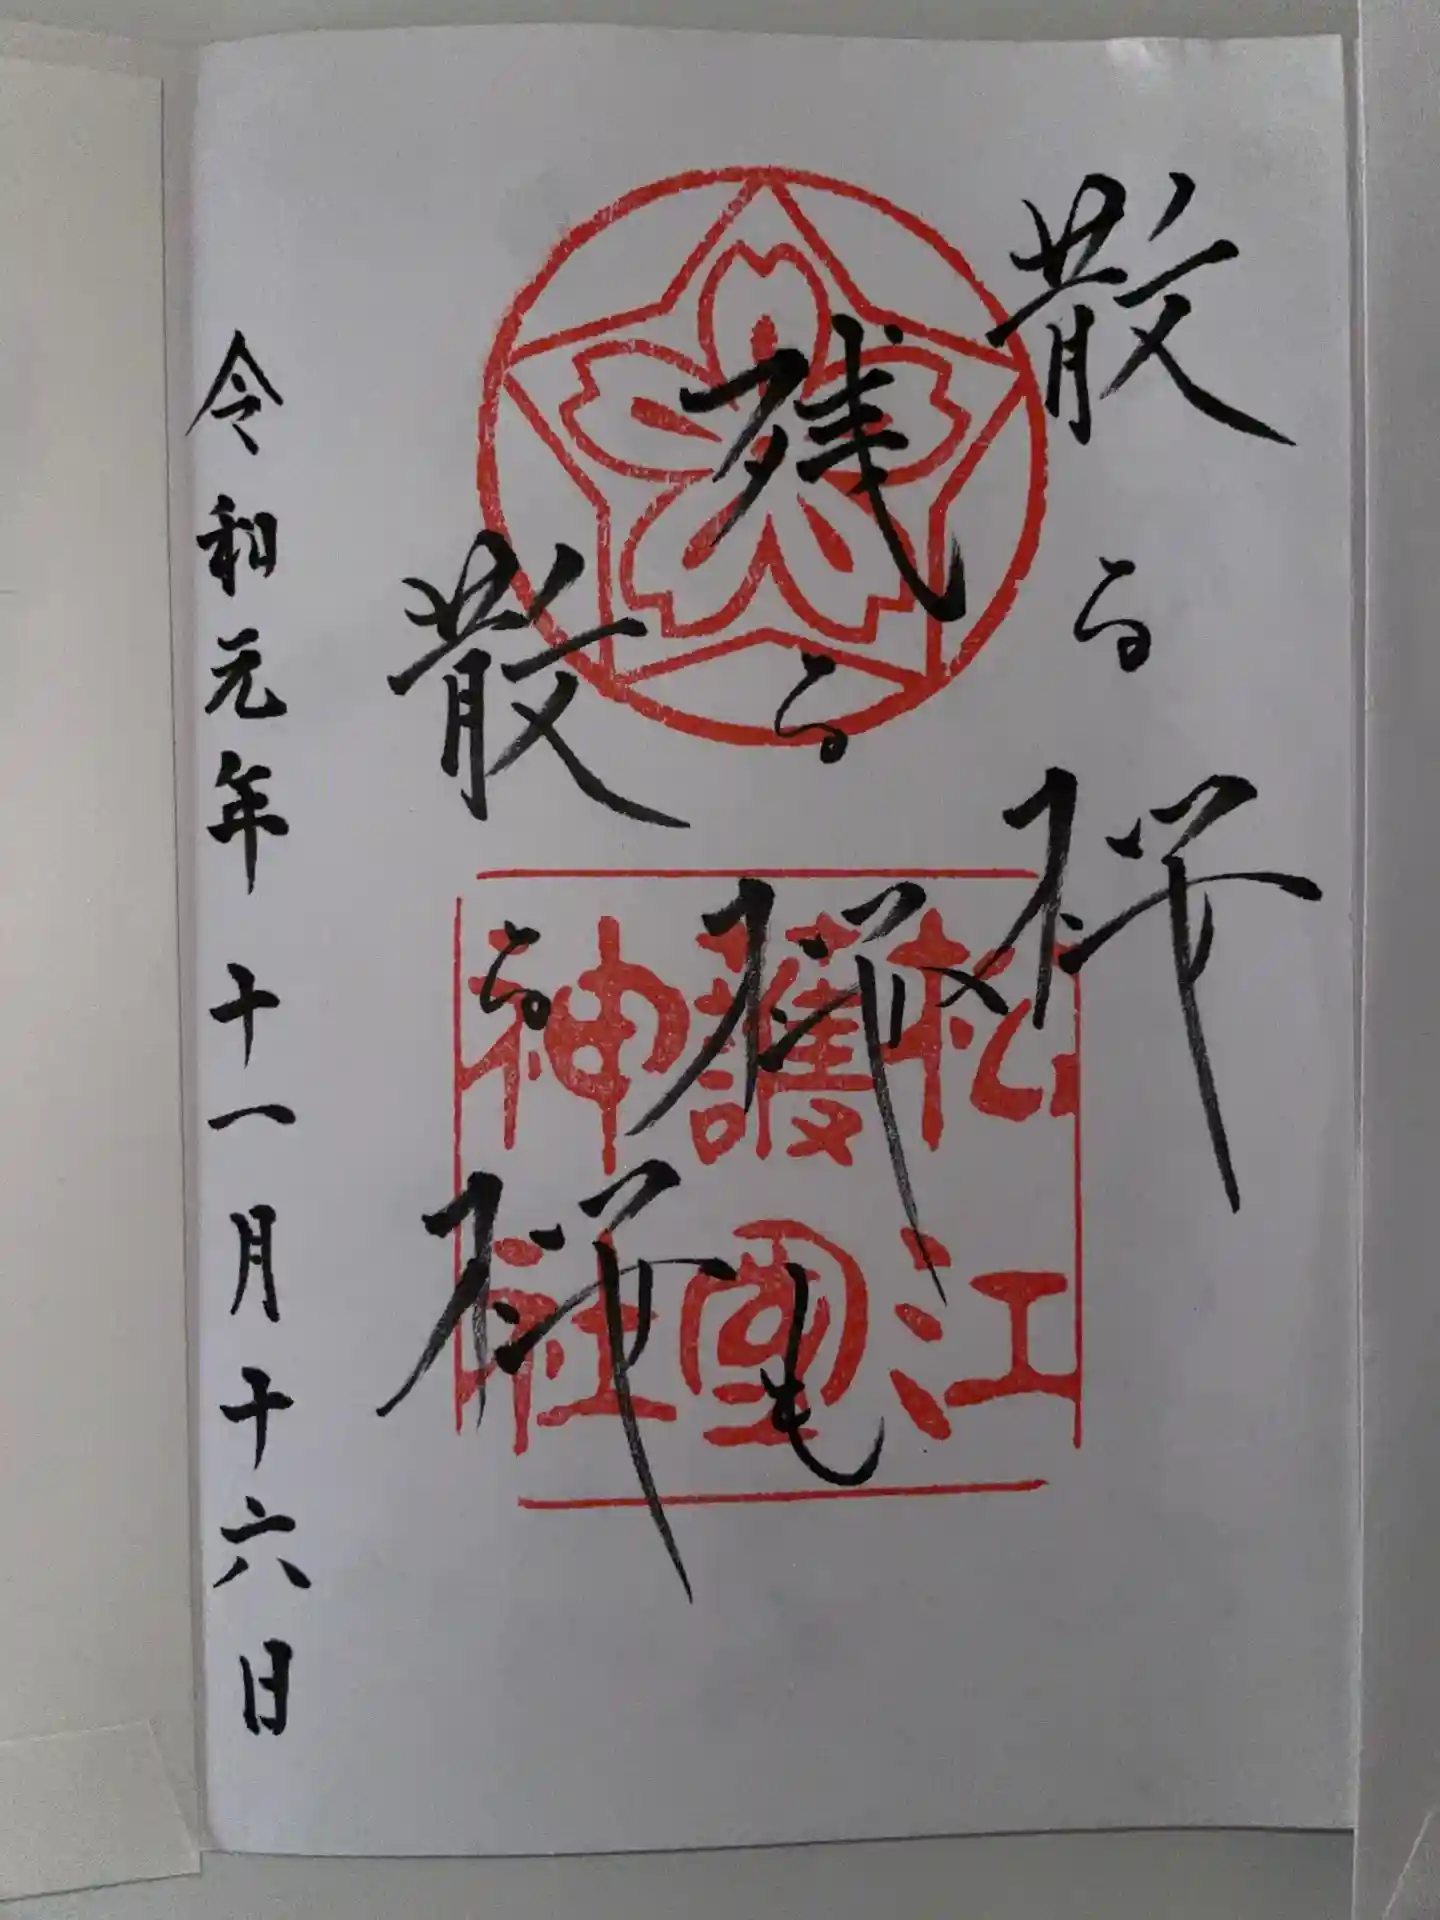 散る桜
残る桜も
散る桜
令和元年十一月十六日
松江
護國
神社